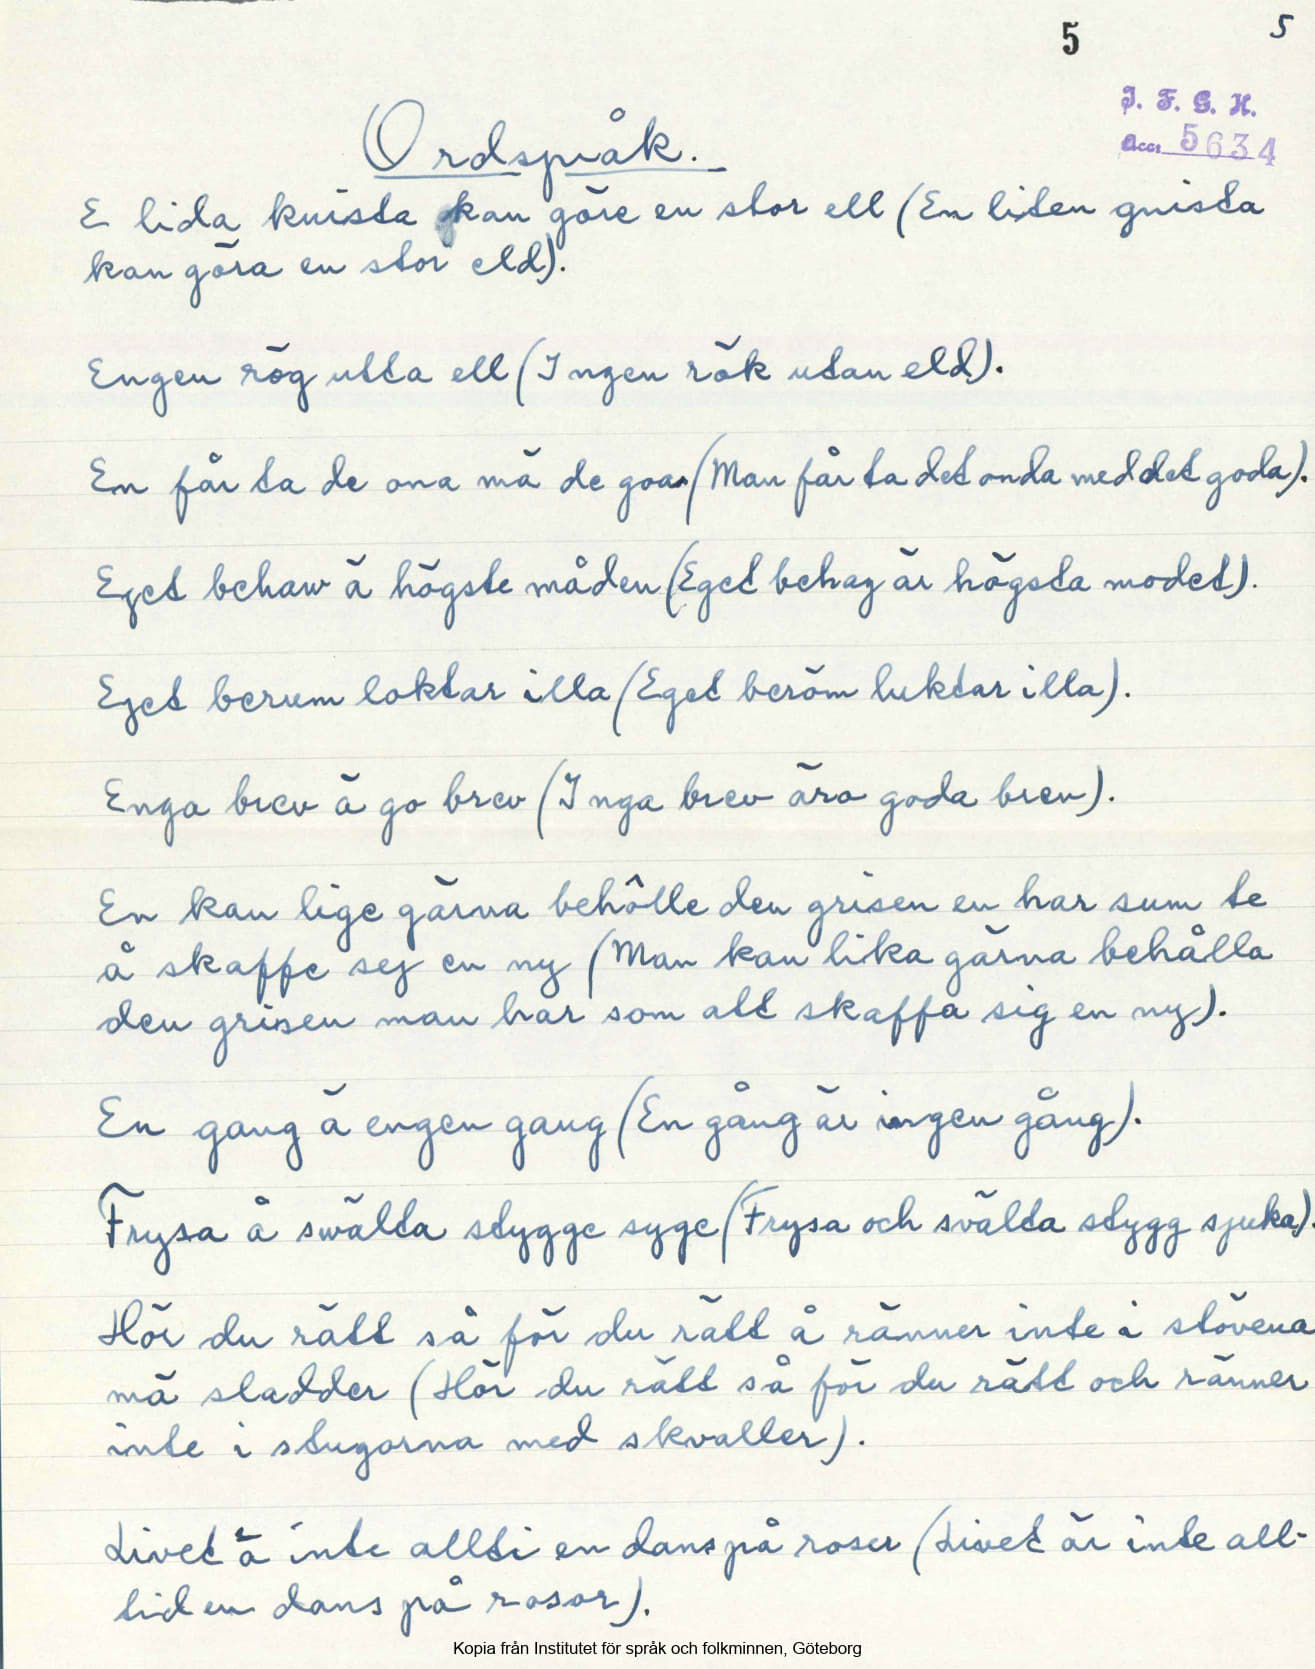 5
5
I. F. G. H.
Acc. 5634
Ordspråk.
E lida knista kan göre en stor ell (En liten gnista
kan göra en stor eld).
Engen rög utta ell (Ingen rök utan eld).
En får ta de ona mä de goa (Man får ta det onda med det goda).
Ejet behaw ä högste måden (Eget behag är högsta modet).
Ejet berum loktar illa (Eget beröm luktar illa).
Enga brev ä go brev (Inga brev äro goda brev).
En kan lige gärna behôlle den grisen en har sum te
å skaffe sej en ny (Man kan lika gärna behålla
den grisen man har som att skaffa sig en ny).
En gang ä engen gang (En gång är ingen gång).
Frysa å swälta stygge syge (Frysa och svälta stygg sjuka).
Hör du rätt så för du rätt å ränner inte i stövena
mä sladder (Hör du rätt så för du rätt och ränner
inte i stugorna med skvaller).
Livet ä inte allti en dans på roser (Livet är inte all-
tid en dans på rosor).
Kopia från Institutet för språk och folkminnen, Göteborg